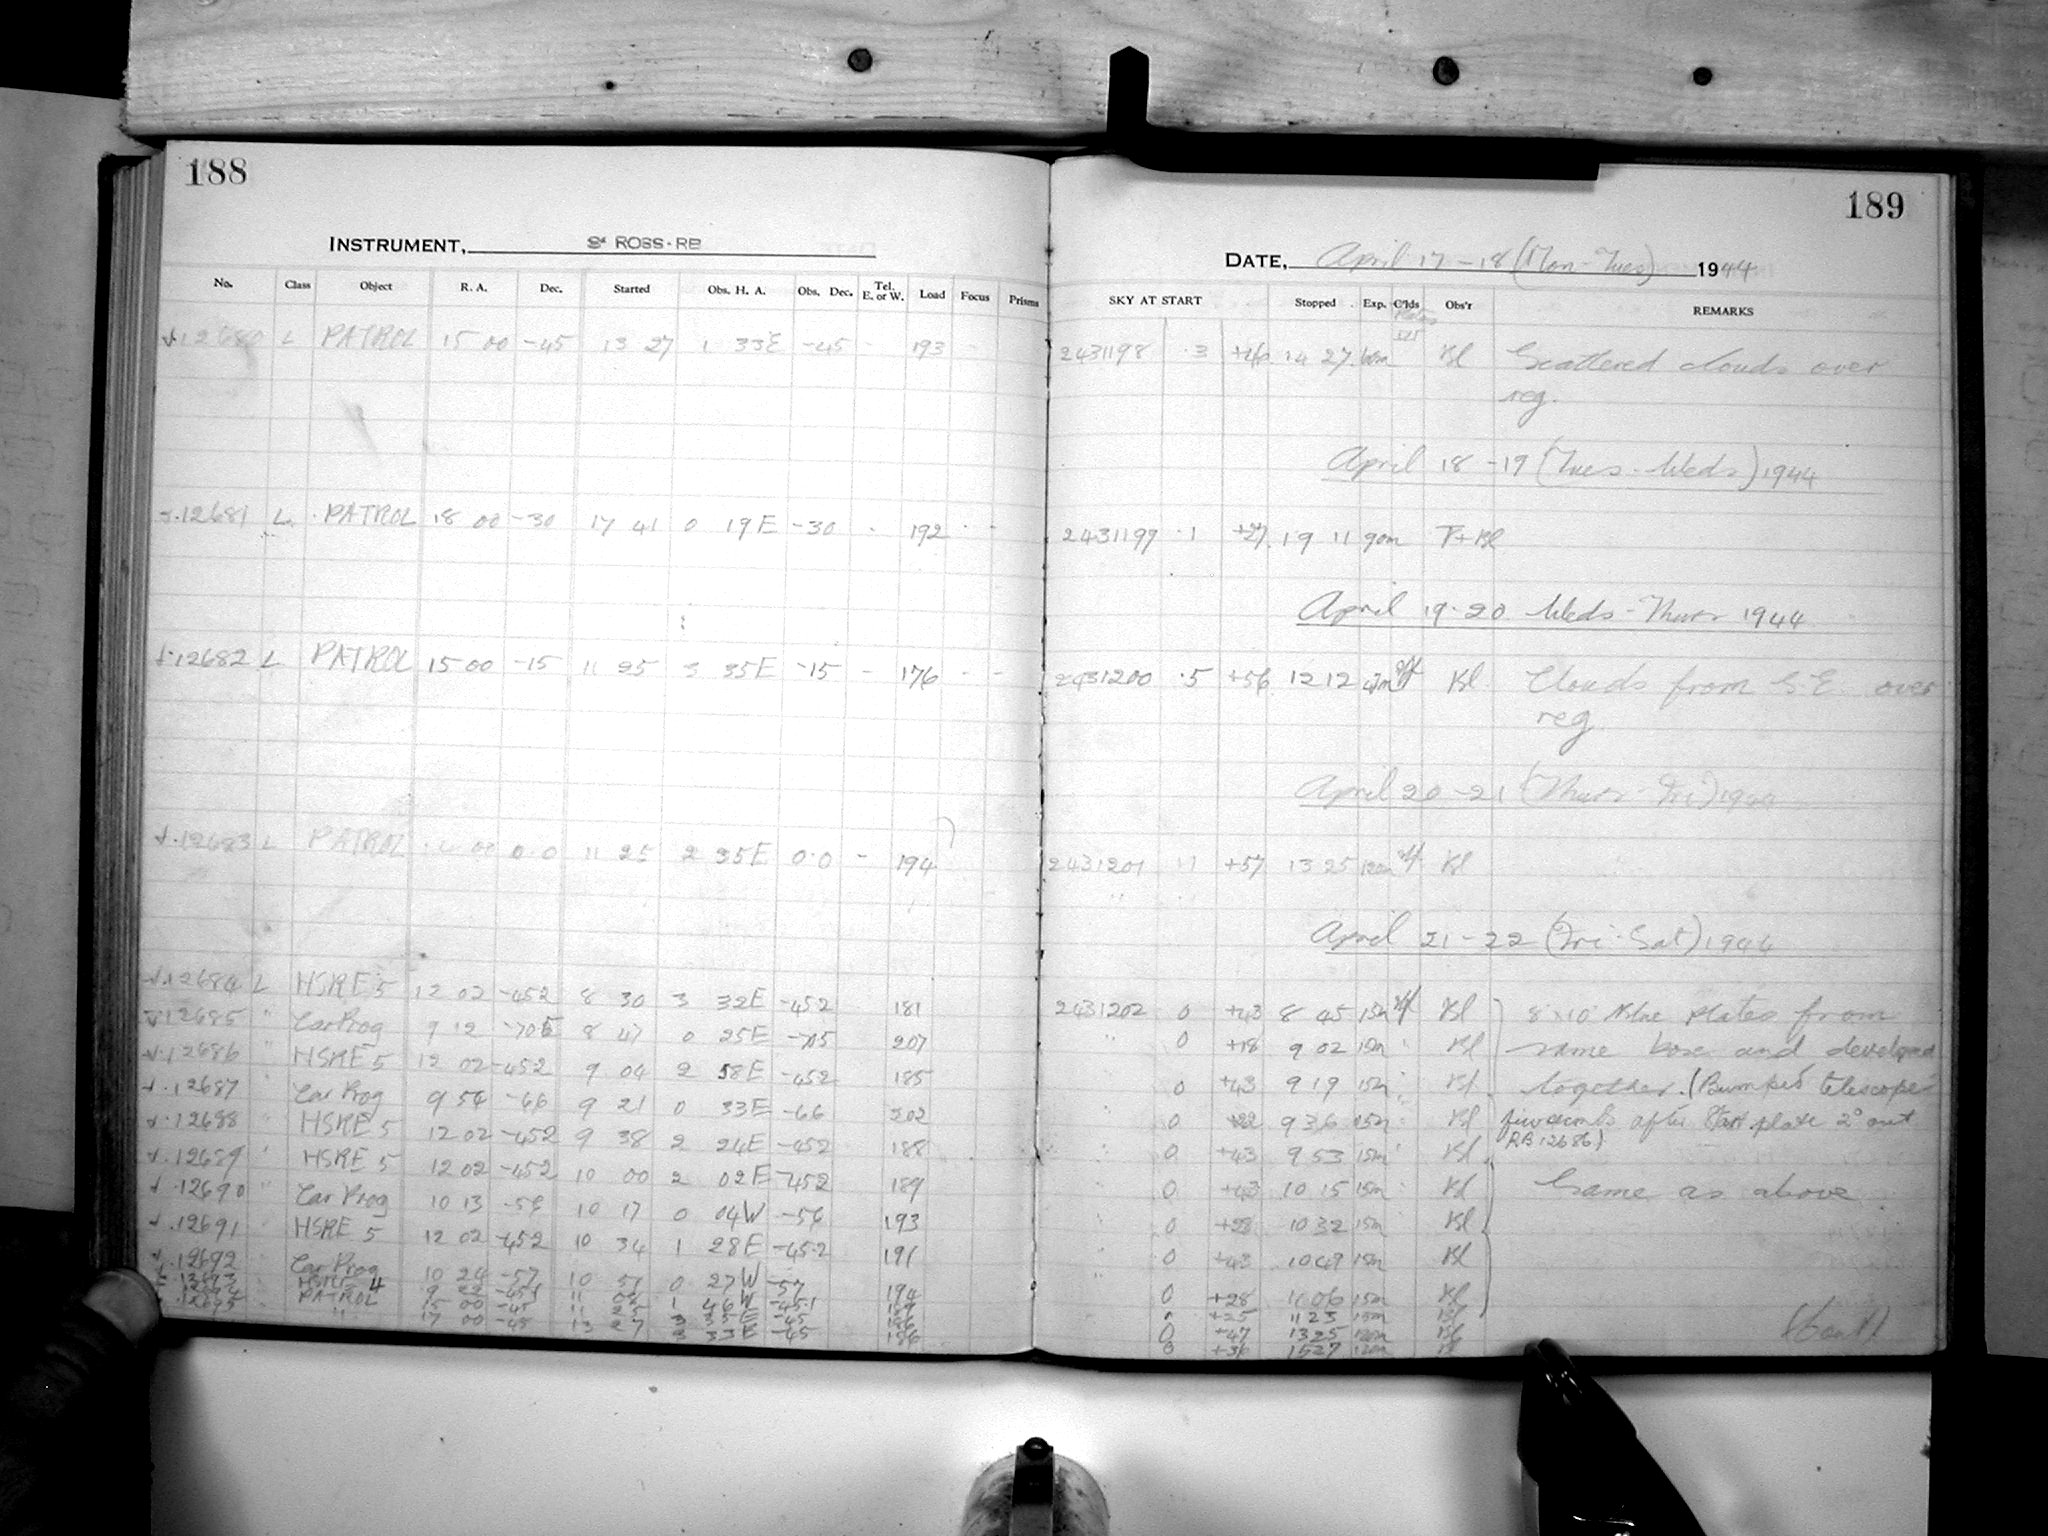 188
INSTRUMENT, ROSS-RB
No. Class Object R. A. Dec. Started Obs. H. A. Obs. Dec. Tel. E. or W. Load Focus Prisms
12680 L PATROL 15 00 -45 13 27 1 33E -45 - 193 -
12681 L. PATROL 18 00 -30 17 41 0 19E -30 - 192 - -
12682 L PATROL 15 00 -15 11 25 3 35E -15 - 176 - -
12683 L PATROL 00 0.0 11 25 2 35E 0.0 - 194
12684 L HSRE 5 12 02 -452 8 30 3 32E -452 181
12685 " Car Prog 9 12 8 47 0 25E -705 207
12686 " HSRE 5 12 02 -452 9 04 2 58E -452 185
12687 " Car Prog 9 54 -66 9 21 0 33E -66 202
12688 " HSRE 5 12 02 -452 9 38 2 24E -452 188
12689 " HSRE 5 12 02 -452 10 00 2 02E -452 189
12690 " Car Prog 10 13 10 17 0 04W 193
12691 " HSRE 5 12 02 -452 10 34 1 28E -45.2 191
12692 " Car Prog 10 24 -57 10 51 0 27W -57 194
12693 4
PATROL 15 00 -45 11 25
12695 " 17 00 -45 13 27
189
DATE, April 17-18 (Mon-Tues) 1944
SKY AT START Stopped Exp. C'lds Obs'r REMARKS
2431198 .3 14 27 60m Bl Scattered clouds over
reg.
April 18-19 (Tues-Weds) 1944
2431199 .1 +27 19 11 90m F+Bl
April 19-20 Weds-Thurs 1944
2431200 .5 +56 12 12 47m Bl Clouds from S.E. over
reg
April 20-21 (Thurs-Fri) 1944
2431201 +57 13 25 120m Bl
April 21-22 (Fri-Sat) 1944
2431202 0 +43 8 45 15m Bl 8x10 Blue plates from
" 0 +18 9 02 15m Bl same box and developed
0 +43 9 19 15m Bl together. (Bumped telescope
0 +22 9 36 15m Bl after start plate 2° out
RB 12686)
0 +43 9 53 15m Bl
0 +43 10 15 15m Bl Same as above
0 +28 10 32 15m Bl
0 +43 10 49 15m Bl
0 +28 11 06 15m Bl
+25 11 23 15m Bl
0 +47 13 25 120m Bl
0 +36 15 27 120m Bl